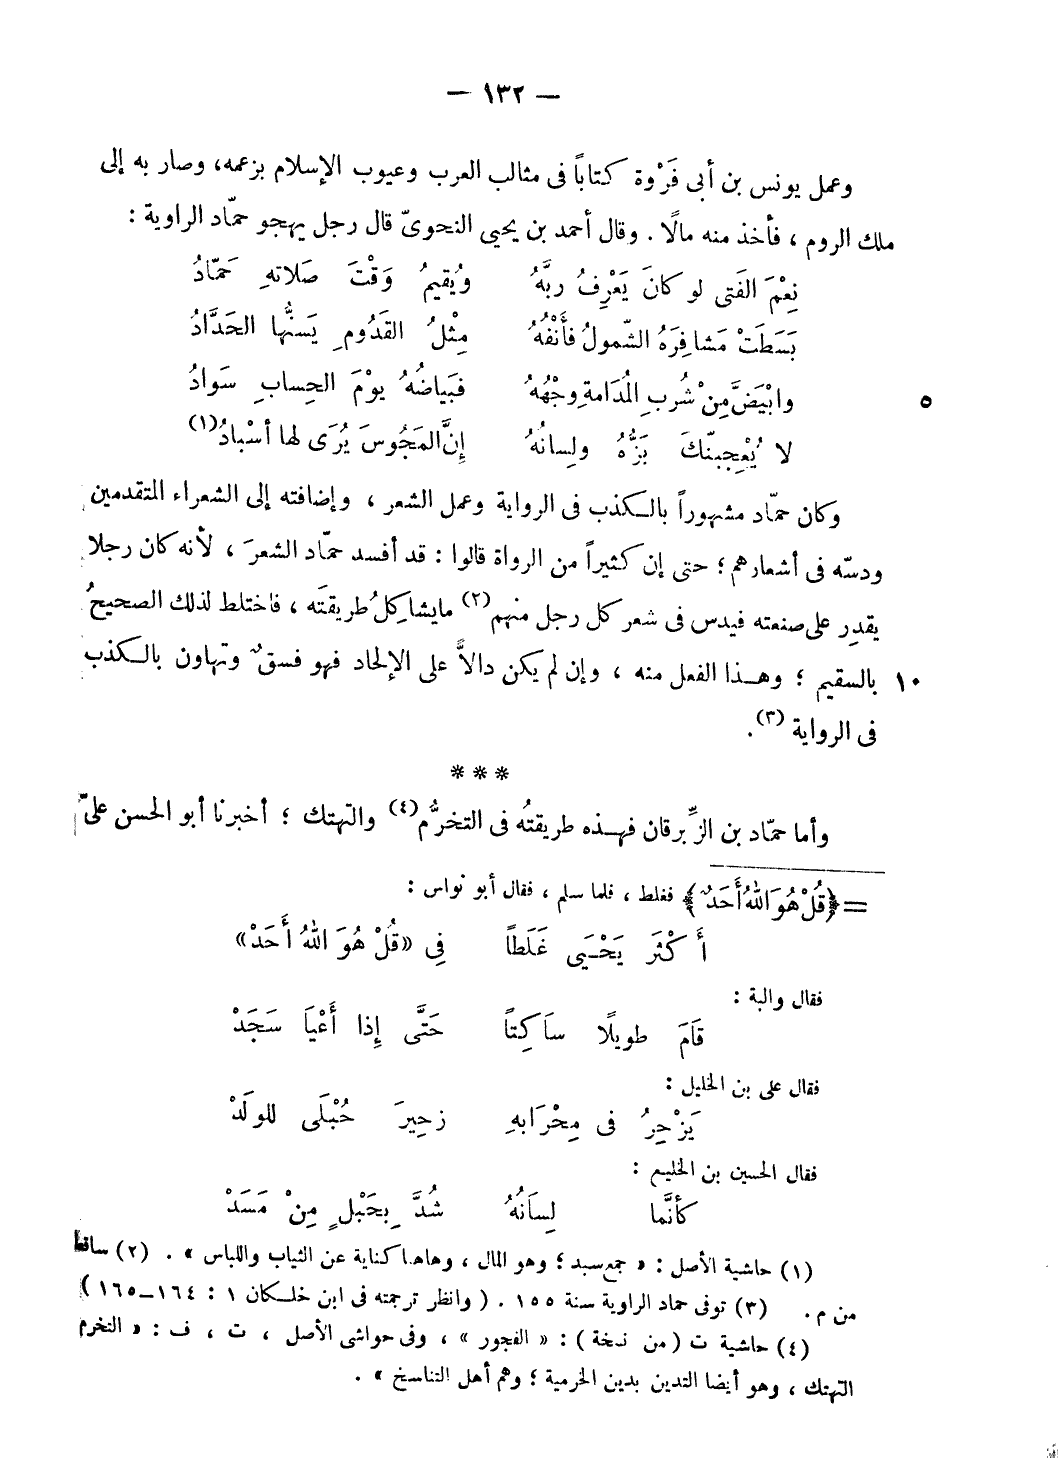 — ١٣٢ —
وعمل يونس بن أبى فَرْوة كتاباً فى مثالب العرب وعيوب الإسلام بزعمه، وصار به إلى
ملك الروم ، فأخذ منه مالًا . وقال أحمد بن يحيى النحوىّ قال رجل يهجو حمّاد الراوية :
نِعْمَ الفَتى لو كانَ يَعْرِفُ ربَّهُ ويُقيمُ وَقْتَ صَلاتهِ حَمّادُ
بَسَطَتْ مَشافِرَهُ الشّمولُ فأَنْفُهُ مِثْلُ القَدُومِ يَسنُّها الحَدَّادُ
٥ وابْيَضَّ مِنْ شُربِ المُدَامةِ وجْهُهُ فبَياضُهُ يوْمَ الحِسابِ سَوادُ
لا يُعْجِبنّكَ بَزُّهُ ولِسانُهُ إنَّ المَجُوسَ يُرَى لها أسْبادُ(١)
وكان حمّاد مشهوراً بالكذب فى الرواية وعمل الشعر ، وإضافته إلى الشعراء المتقدمين
ودسّه فى أشعارهم ؛ حتى إن كثيراً من الرواة قالوا : قد أفسد حمّاد الشعرَ ، لأنه كان رجلا
يقدِر على صنعته فيدس فى شعر كل رجل منهم(٢) مايشاكِلُ طريقتَه ، فاختلط لذلك الصحيحُ
١٠ بالسقيم ؛ وهـذا الفعل منه ، وإن لم يكن دالاًّ على الإلحاد فهو فسقٌ وتهاون بالكذب
فى الرواية (٣).
* * *
وأما حمّاد بن الزِّبرقان فهـذه طريقتُه فى التخرُّم(٤) والتهتك ؛ أخبرنا أبو الحسن علىّ
= ﴿قُلْ هُوَ اللهُ أَحَدٌ﴾ فغلط ، فلما سلم ، فقال أبو نواس :
أَكْثَرَ يَحْيَى غَلَطاً فِى «قُلْ هُوَ اللهُ أَحَدْ»
فقال والبة :
قَامَ طويلًا ساَكِتاً حَتَّى إِذا أَعْيَا سَجَدْ
فقال على بن الخليل :
يَزْحِرُ فى مِحْرَابهِ زحِيرَ حُبْلَى للولَدْ
فقال الحسين بن الخليع :
كأنَّما لِسَانُهُ شُدَّ بِحَبْلٍ مِنْ مَسَدْ
(١) حاشية الأصل : « جمع سبد ؛ وهو المال ، وهاهنا كناية عن الثياب واللباس » . (٢) ساقط
من م . (٣) توفى حماد الراوية سنة ١٥٥ . ( وانظر ترجمته فى ابن خلكان ١ : ١٦٤ــ١٦٥ )
(٤) حاشية ت ( من نسخة ) : « الفجور » ، وفى حواشى الأصل ، ت ، ف : « التخرم
التهتك ، وهو أيضا التدين بدين الخرمية ؛ وهم أهل التناسخ » .